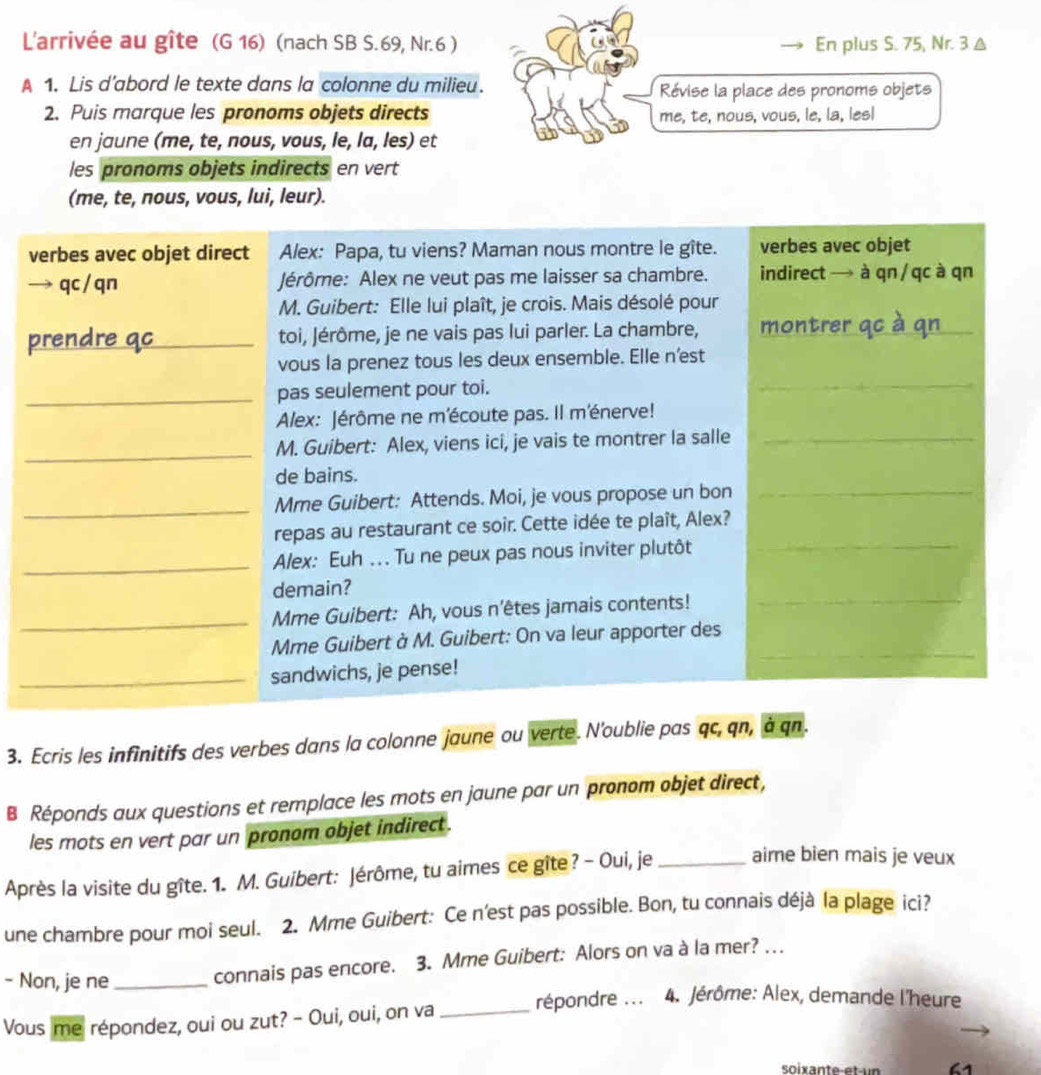 L'arrivée au gîte (G 16) (nach SB S.69, Nr.6 )
→ En plus S. 75, Nr. 3 △
A 1. Lis d'abord le texte dans la colonne du milieu.
2. Puis marque les pronoms objets directs
en jaune (me, te, nous, vous, le, la, les) et
les pronoms objets indirects en vert
(me, te, nous, vous, lui, leur).
Révise la place des pronoms objets
me, te, nous, vous, le, la, les!
verbes avec objet direct
→ qc/qn
prendre qc
Alex: Papa, tu viens? Maman nous montre le gîte.
Jérôme: Alex ne veut pas me laisser sa chambre.
M. Guibert: Elle lui plaît, je crois. Mais désolé pour
toi, Jérôme, je ne vais pas lui parler. La chambre,
vous la prenez tous les deux ensemble. Elle n'est
pas seulement pour toi.
Alex: Jérôme ne m'écoute pas. Il m'énerve!
M. Guibert: Alex, viens ici, je vais te montrer la salle
de bains.
Mme Guibert: Attends. Moi, je vous propose un bon
repas au restaurant ce soir. Cette idée te plaît, Alex?
Alex: Euh ... Tu ne peux pas nous inviter plutôt
demain?
Mme Guibert: Ah, vous n'êtes jamais contents!
Mme Guibert à M. Guibert: On va leur apporter des
sandwichs, je pense!
verbes avec objet
indirect → à qn/qc à qn
montrer qc à qn
3. Ecris les infinitifs des verbes dans la colonne jaune ou verte. N'oublie pas qc, qn, à qn.
B Réponds aux questions et remplace les mots en jaune par un pronom objet direct,
les mots en vert par un pronom objet indirect.
Après la visite du gîte. 1. M. Guibert: Jérôme, tu aimes ce gîte? – Oui, je ________ aime bien mais je veux
une chambre pour moi seul. 2. Mme Guibert: Ce n'est pas possible. Bon, tu connais déjà la plage ici?
– Non, je ne ________ connais pas encore. 3. Mme Guibert: Alors on va à la mer? ...
Vous me répondez, oui ou zut? – Oui, oui, on va ________ répondre ... 4. Jérôme: Alex, demande l'heure
→
soixante-et-un 61